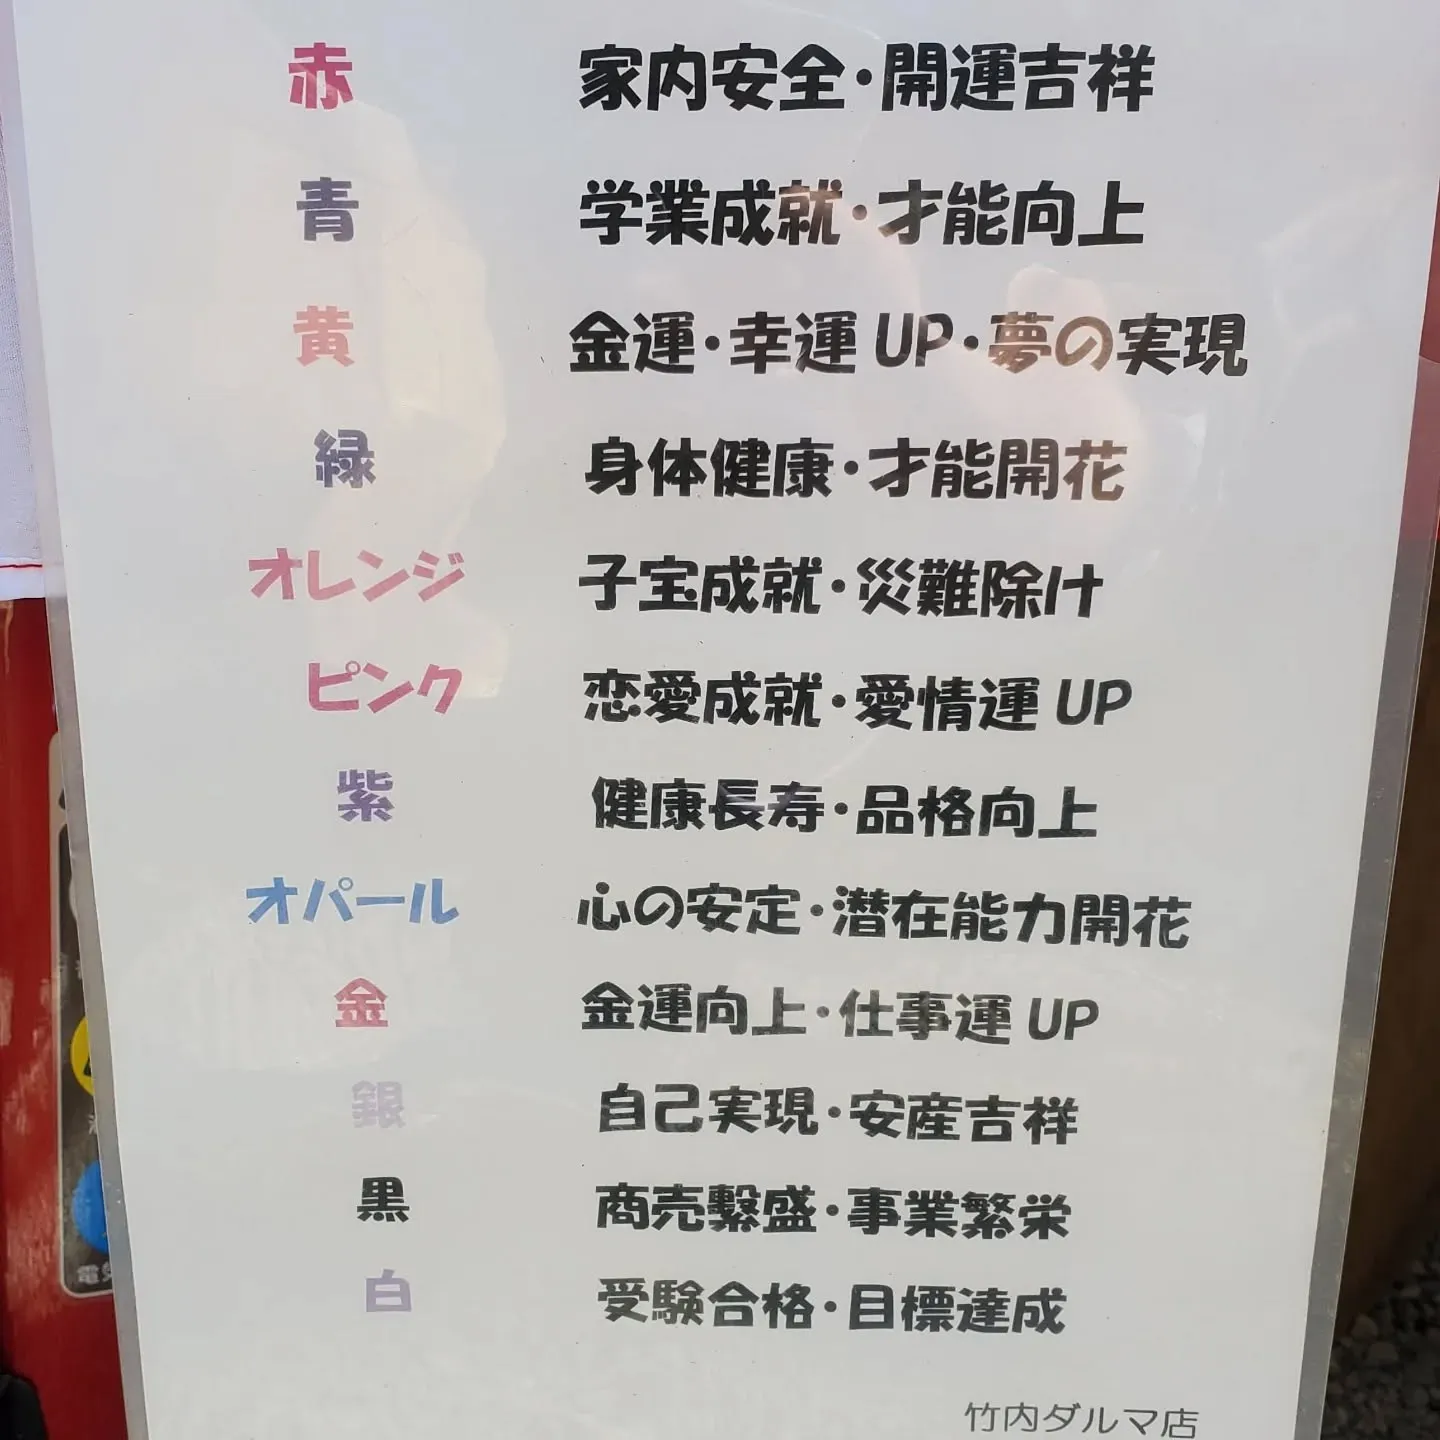 赤 家内安全・開運吉祥
青 学業成就・才能向上
黄 金運・幸運UP・夢の実現
緑 身体健康・才能開花
オレンジ 子宝成就・災難除け
ピンク 恋愛成就・愛情運UP
紫 健康長寿・品格向上
オパール 心の安定・潜在能力開花
金 金運向上・仕事運UP
銀 自己実現・安産吉祥
黒 商売繫盛・事業繁栄
白 受験合格・目標達成
竹内ダルマ店